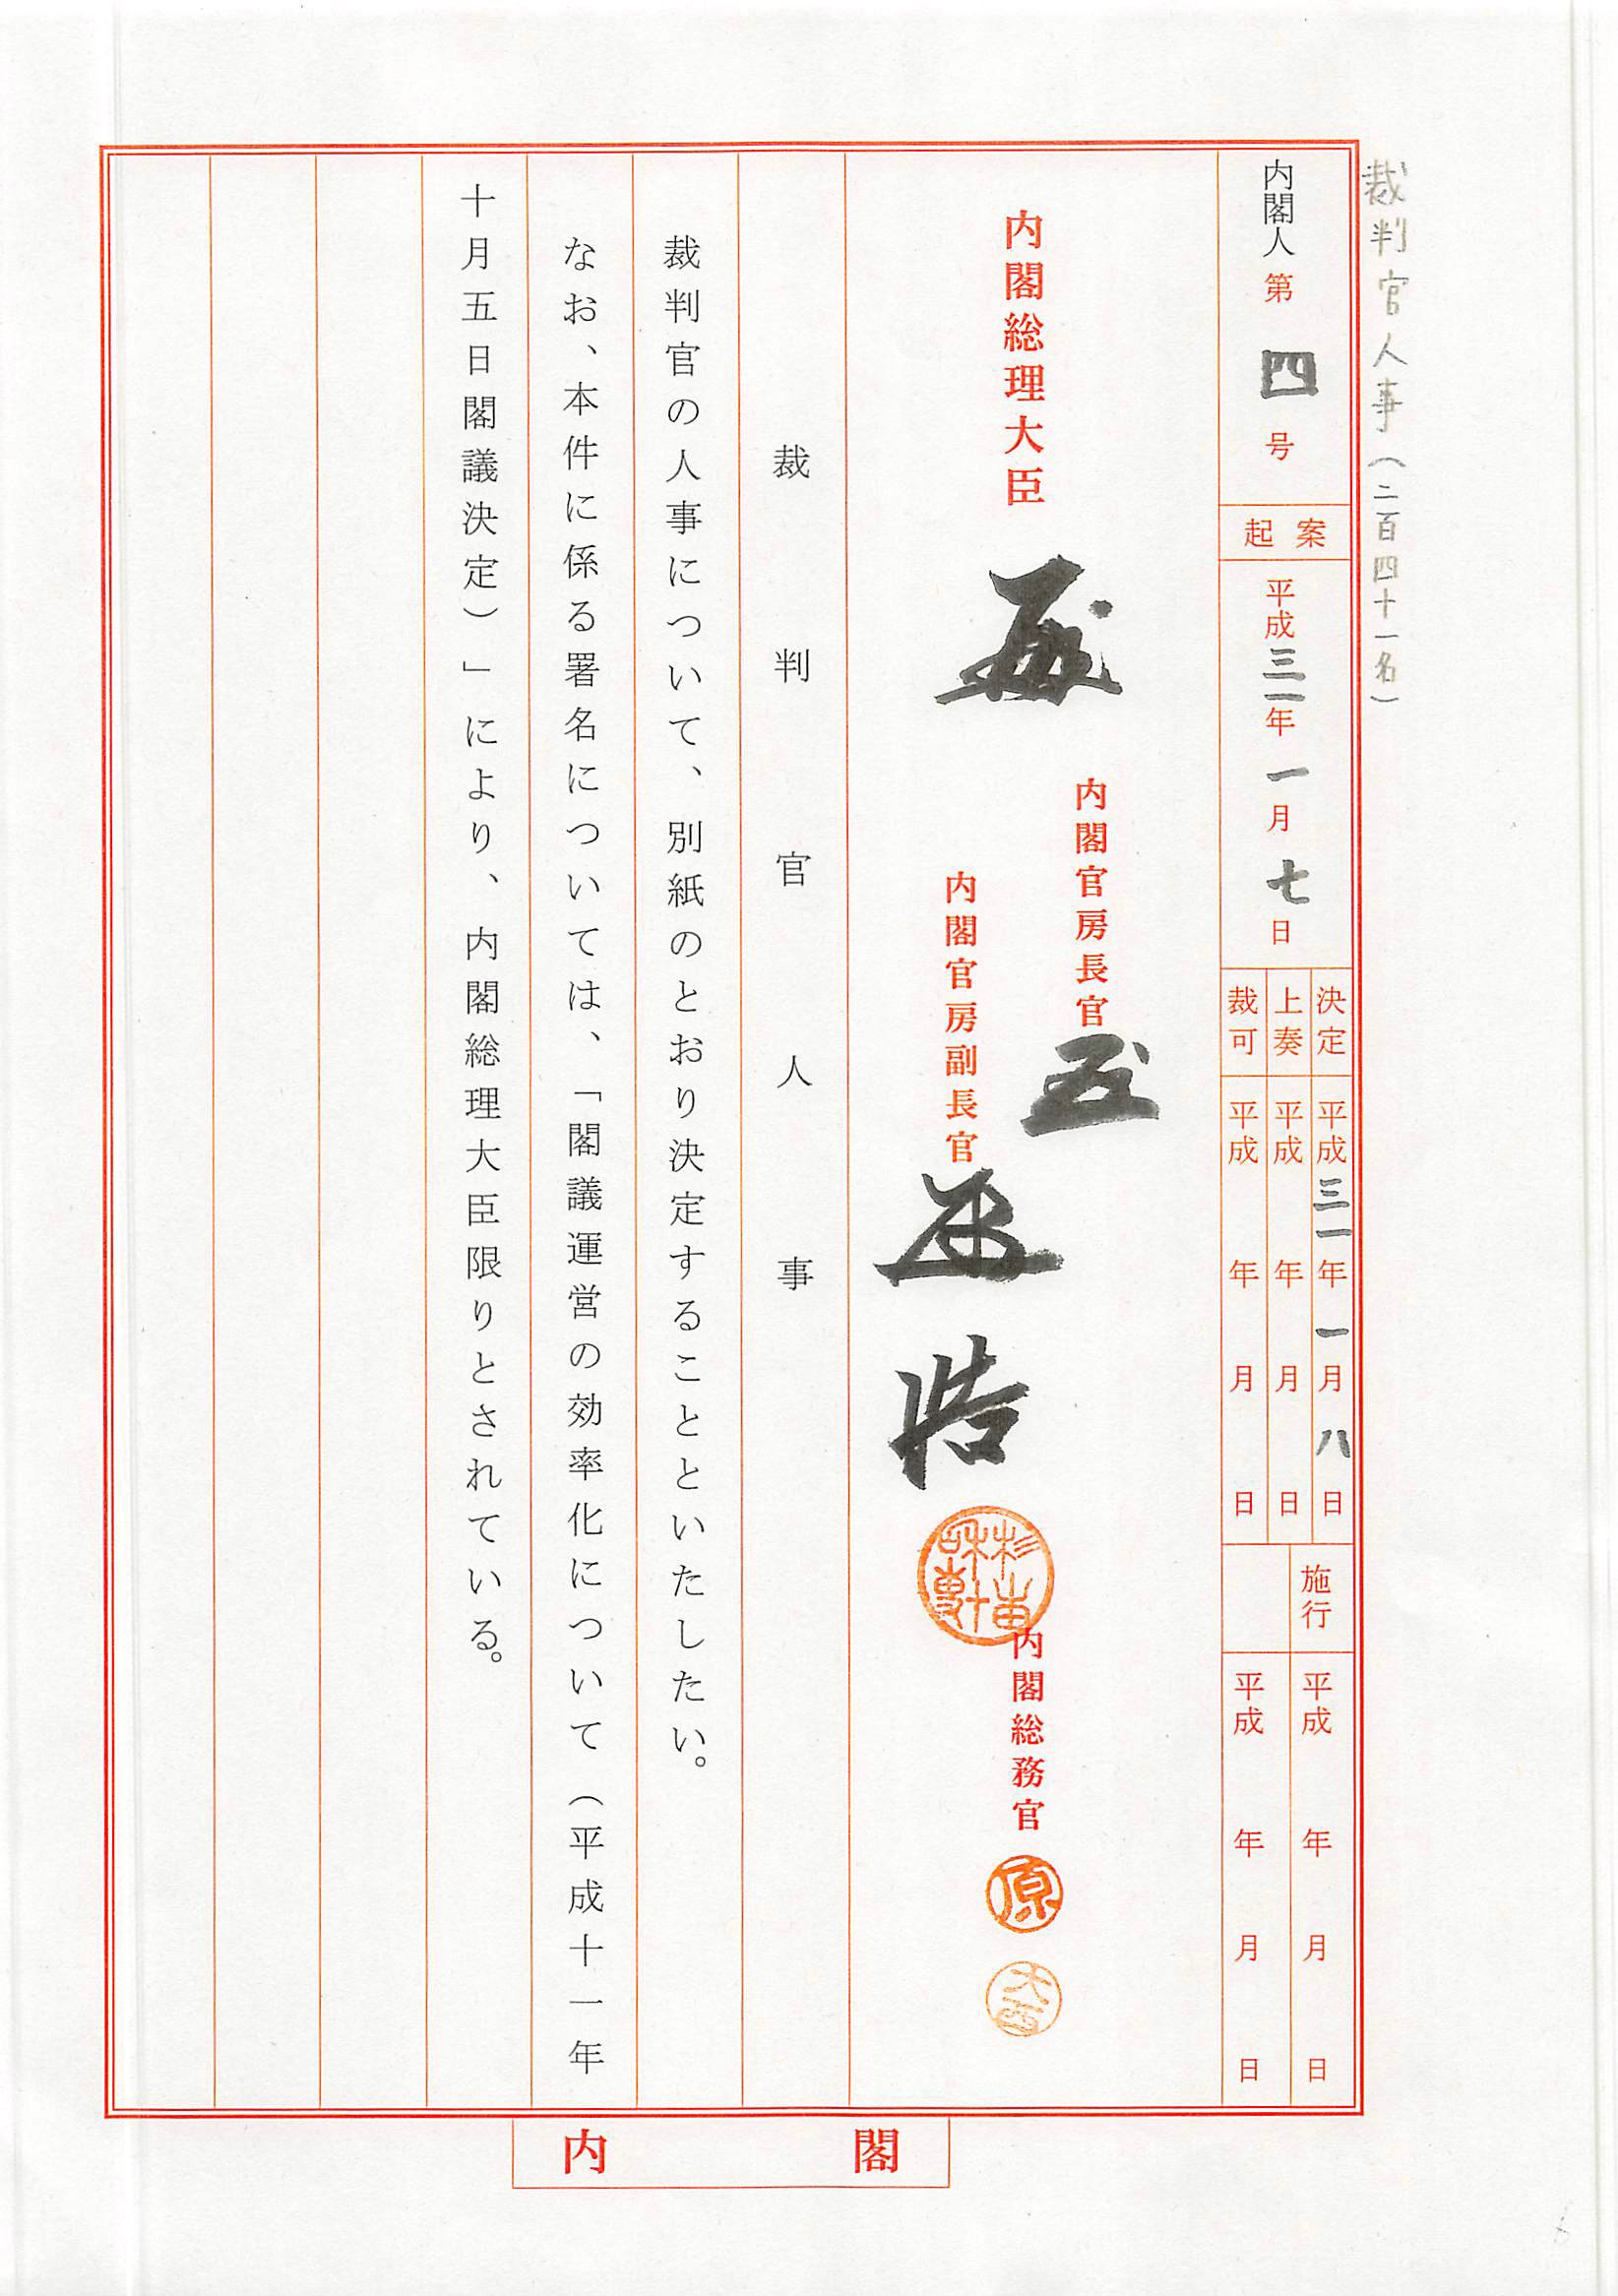 裁判官人事（二百四十一名）
内閣人第四号
起案
平成三一年一月七日
決定 平成三一年一月八日
上奏 平成 年 月 日
裁可 平成 年 月 日
施行 平成 年 月 日
平成 年 月 日
内閣総理大臣
内閣官房長官
内閣官房副長官
内閣総務官
原
大西
裁判官人事
裁判官の人事について、別紙のとおり決定することといたしたい。
なお、本件に係る署名については、「閣議運営の効率化について（平成十一年
十月五日閣議決定）」により、内閣総理大臣限りとされている。
内閣